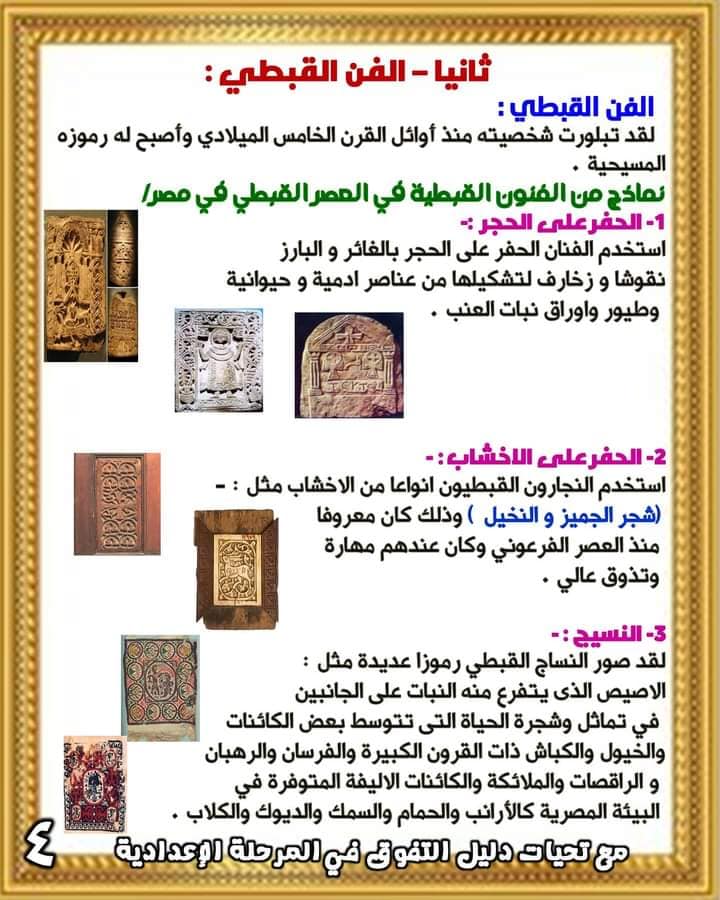 ثانيا – الفن القبطي :
الفن القبطي :
لقد تبلورت شخصيته منذ أوائل القرن الخامس الميلادي وأصبح له رموزه
المسيحية .
نماذج من الفنون القبطية في العصر القبطي في مصر/
1- الحفر على الحجر :-
استخدم الفنان الحفر على الحجر بالغائر و البارز
نقوشا و زخارف لتشكيلها من عناصر ادمية و حيوانية
وطيور واوراق نبات العنب .
2- الحفر على الاخشاب : -
استخدم النجارون القبطيون انواعا من الاخشاب مثل : -
(شجر الجميز و النخيل ) وذلك كان معروفا
منذ العصر الفرعوني وكان عندهم مهارة
وتذوق عالي .
3- النسيج : -
لقد صور النساج القبطي رموزا عديدة مثل :
الاصيص الذى يتفرع منه النبات على الجانبين
في تماثل وشجرة الحياة التى تتوسط بعض الكائنات
والخيول والكباش ذات القرون الكبيرة والفرسان والرهبان
و الراقصات والملائكة والكائنات الاليفة المتوفرة في
البيئة المصرية كالأرانب والحمام والسمك والديوك والكلاب .
مع تحيات دليل التفوق في المرحلة الإعدادية
٤